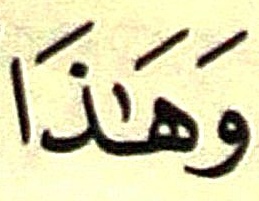 وَهَٰذَا